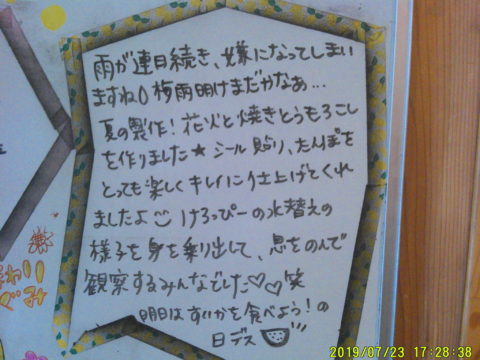 雨が連日続き、嫌になってしまい
ますね０梅雨明けまだかなぁ...
夏の製作！花火と焼きとうもろこし
を作りました★シール貼り、たんぽを
とっても楽しくキレイに仕上げてくれ
ましたよ けろっぴーの水替えの
様子を身を乗り出して、息をのんで
観察するみんなでした♡♡笑
明日はすいかを食べよう！の
日デス
わり
ぐみ
2019/07/23 17:28:38